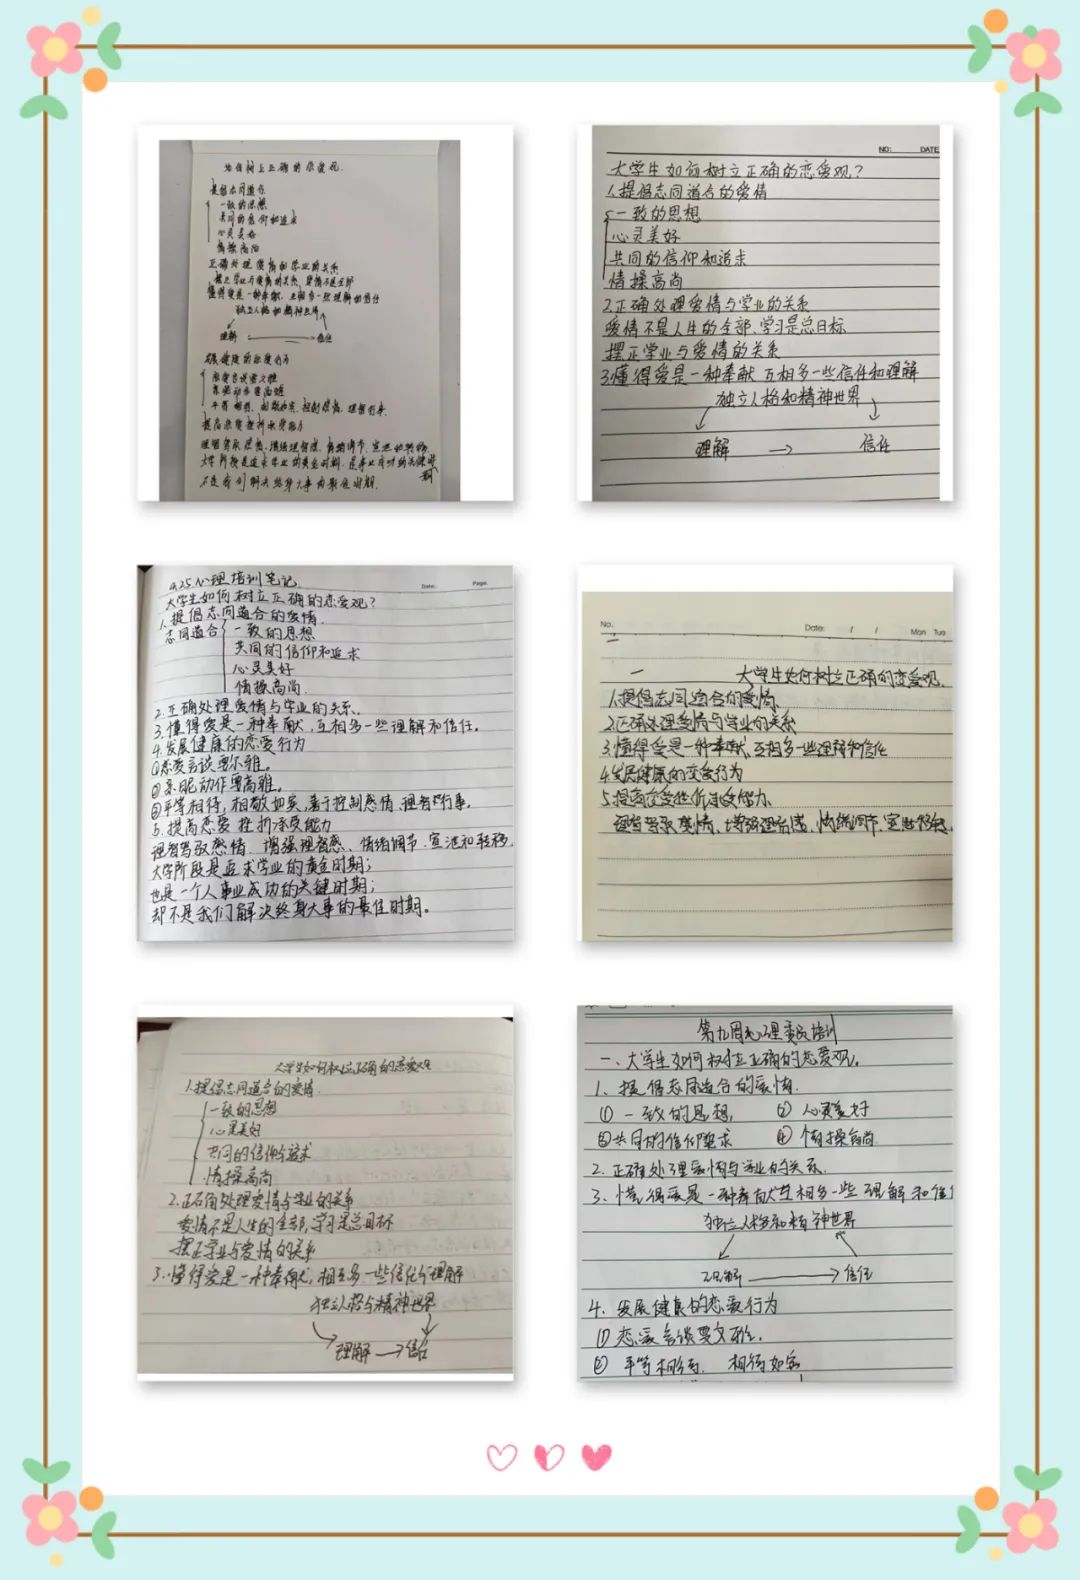 为何树立正确的恋爱观.
提倡志同道合
一致的思想
共同的信仰和追求
心灵美好
情操高尚
正确处理爱情和学业的关系
摆正学业与爱情的关系,爱情不是全部
懂得爱是一种奉献,互相多一些理解和信任
独立人格和精神世界
理解 信任
发展健康的恋爱行为
恋爱言谈要文雅
亲昵动作要高雅
平等相待、相敬如宾、控制感情、理智行事.
提高恋爱挫折承受能力
理智驾驭感情,增强理智感,情绪调节,宣泄和转移
大学阶段是追求学业的黄金时期,是事业成功的关键时期
不是我们解决终身大事的最佳时期.
NO: DATE
大学生如何树立正确的恋爱观?
1.提倡志同道合的爱情
一致的思想
心灵美好
共同的信仰和追求
情操高尚
2.正确处理爱情与学业的关系
爱情不是人生的全部、学习是总目标
摆正学业与爱情的关系
3.懂得爱是一种奉献 互相多一些信任和理解
独立人格和精神世界
理解 → 信任
4.25心理培训笔记.
Date: Page
大学生如何树立正确的恋爱观?
1.提倡志同道合的爱情.
志同道合 一致的思想
共同的信仰和追求
心灵美好
情操高尚.
2.正确处理爱情与学业的关系.
3.懂得爱是一种奉献,互相多一些理解和信任.
4.发展健康的恋爱行为
①恋爱言谈要尔雅。
②亲昵动作要高雅。
③平等相待,相敬如宾,善于控制感情,理智行事.
5.提高恋爱挫折承受能力
理智驾驭感情、增强理智感、情绪调节、宣泄和转移.
大学阶段是追求学业的黄金时期;
也是一个人事业成功的关键时期;
却不是我们解决终身大事的最佳时期。
No. Date: / / Mon Tue
一 大学生如何树立正确的恋爱观.
1.提倡志同道合的爱情
2.正确处理爱情与学业的关系
3.懂得爱是一种奉献,互相多一些理解和信任
4.发展健康的恋爱行为
5.提高恋爱挫折承受能力.
理智驾驭感情、增强理智感、情绪调节、宣泄转移.
大学生如何树立正确的恋爱观
1.提倡志同道合的爱情.
一致的思想
心灵美好
共同的信仰与追求
情操高尚
2.正确处理爱情与学业的关系
爱情不是人生的全部,学习是总目标
摆正学业与爱情的关系
3.懂得爱是一种奉献,相互多一些信任与理解
独立人格与精神世界
理解→信任
第九周心理委员培训
一、大学生如何树立正确的恋爱观。
1、提倡志同道合的爱情.
① 一致的思想, ② 心灵美好
③共同的信仰追求 ④ 情操高尚
2.正确处理爱情与学业的关系.
3、懂得爱是一种奉献互相多一些 理解和信
独立人格和精神世界
理解 → 信任
4、发展健康的恋爱行为
① 恋爱言谈要文雅.
② 平等相待、相待如宾